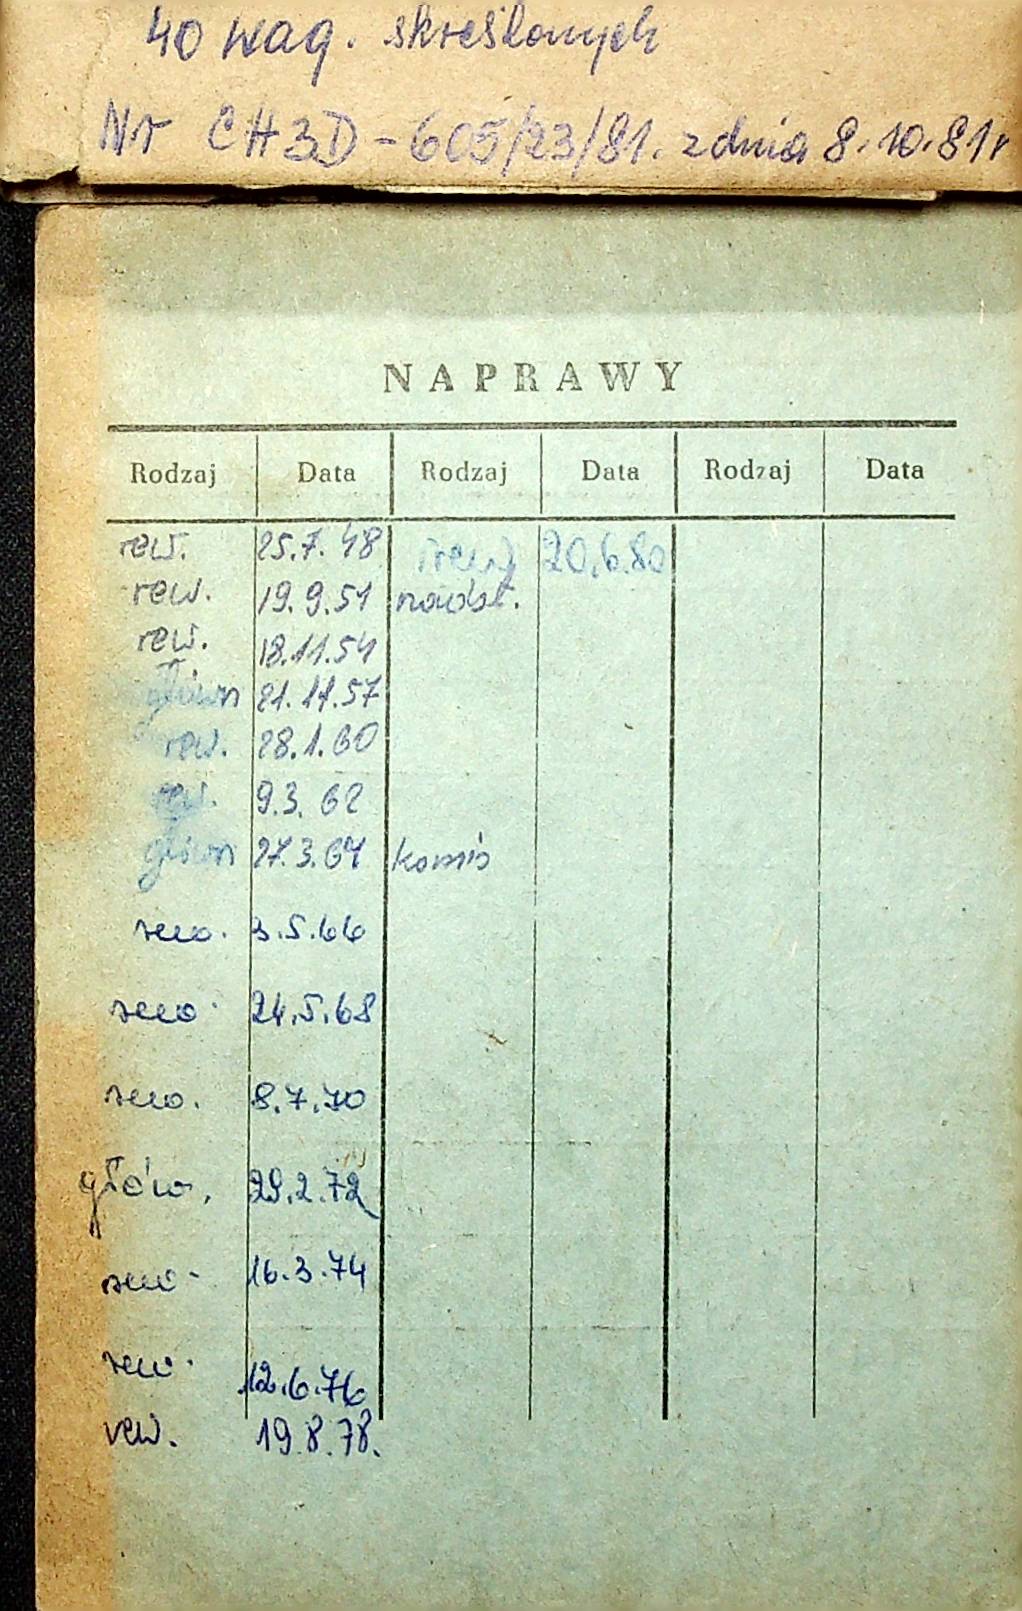 40 wag. skreślonych
Nr CH3D-605/23/81. z dnia 8.10.81r
NAPRAWY
Rodzaj Data Rodzaj Data Rodzaj Data
rew. 25.7.48 rew. 20.6.80
rew. 19.9.51 nadst.
rew. 18.11.54
główn 21.11.57
rew. 28.1.60
rew. 9.3.62
główn 27.3.64 komis
rew. 3.5.66
rew. 24.5.68
rew. 8.7.70
główn. 29.2.72
rew. 16.3.74
rew. 12.6.76
rew. 19.8.78.